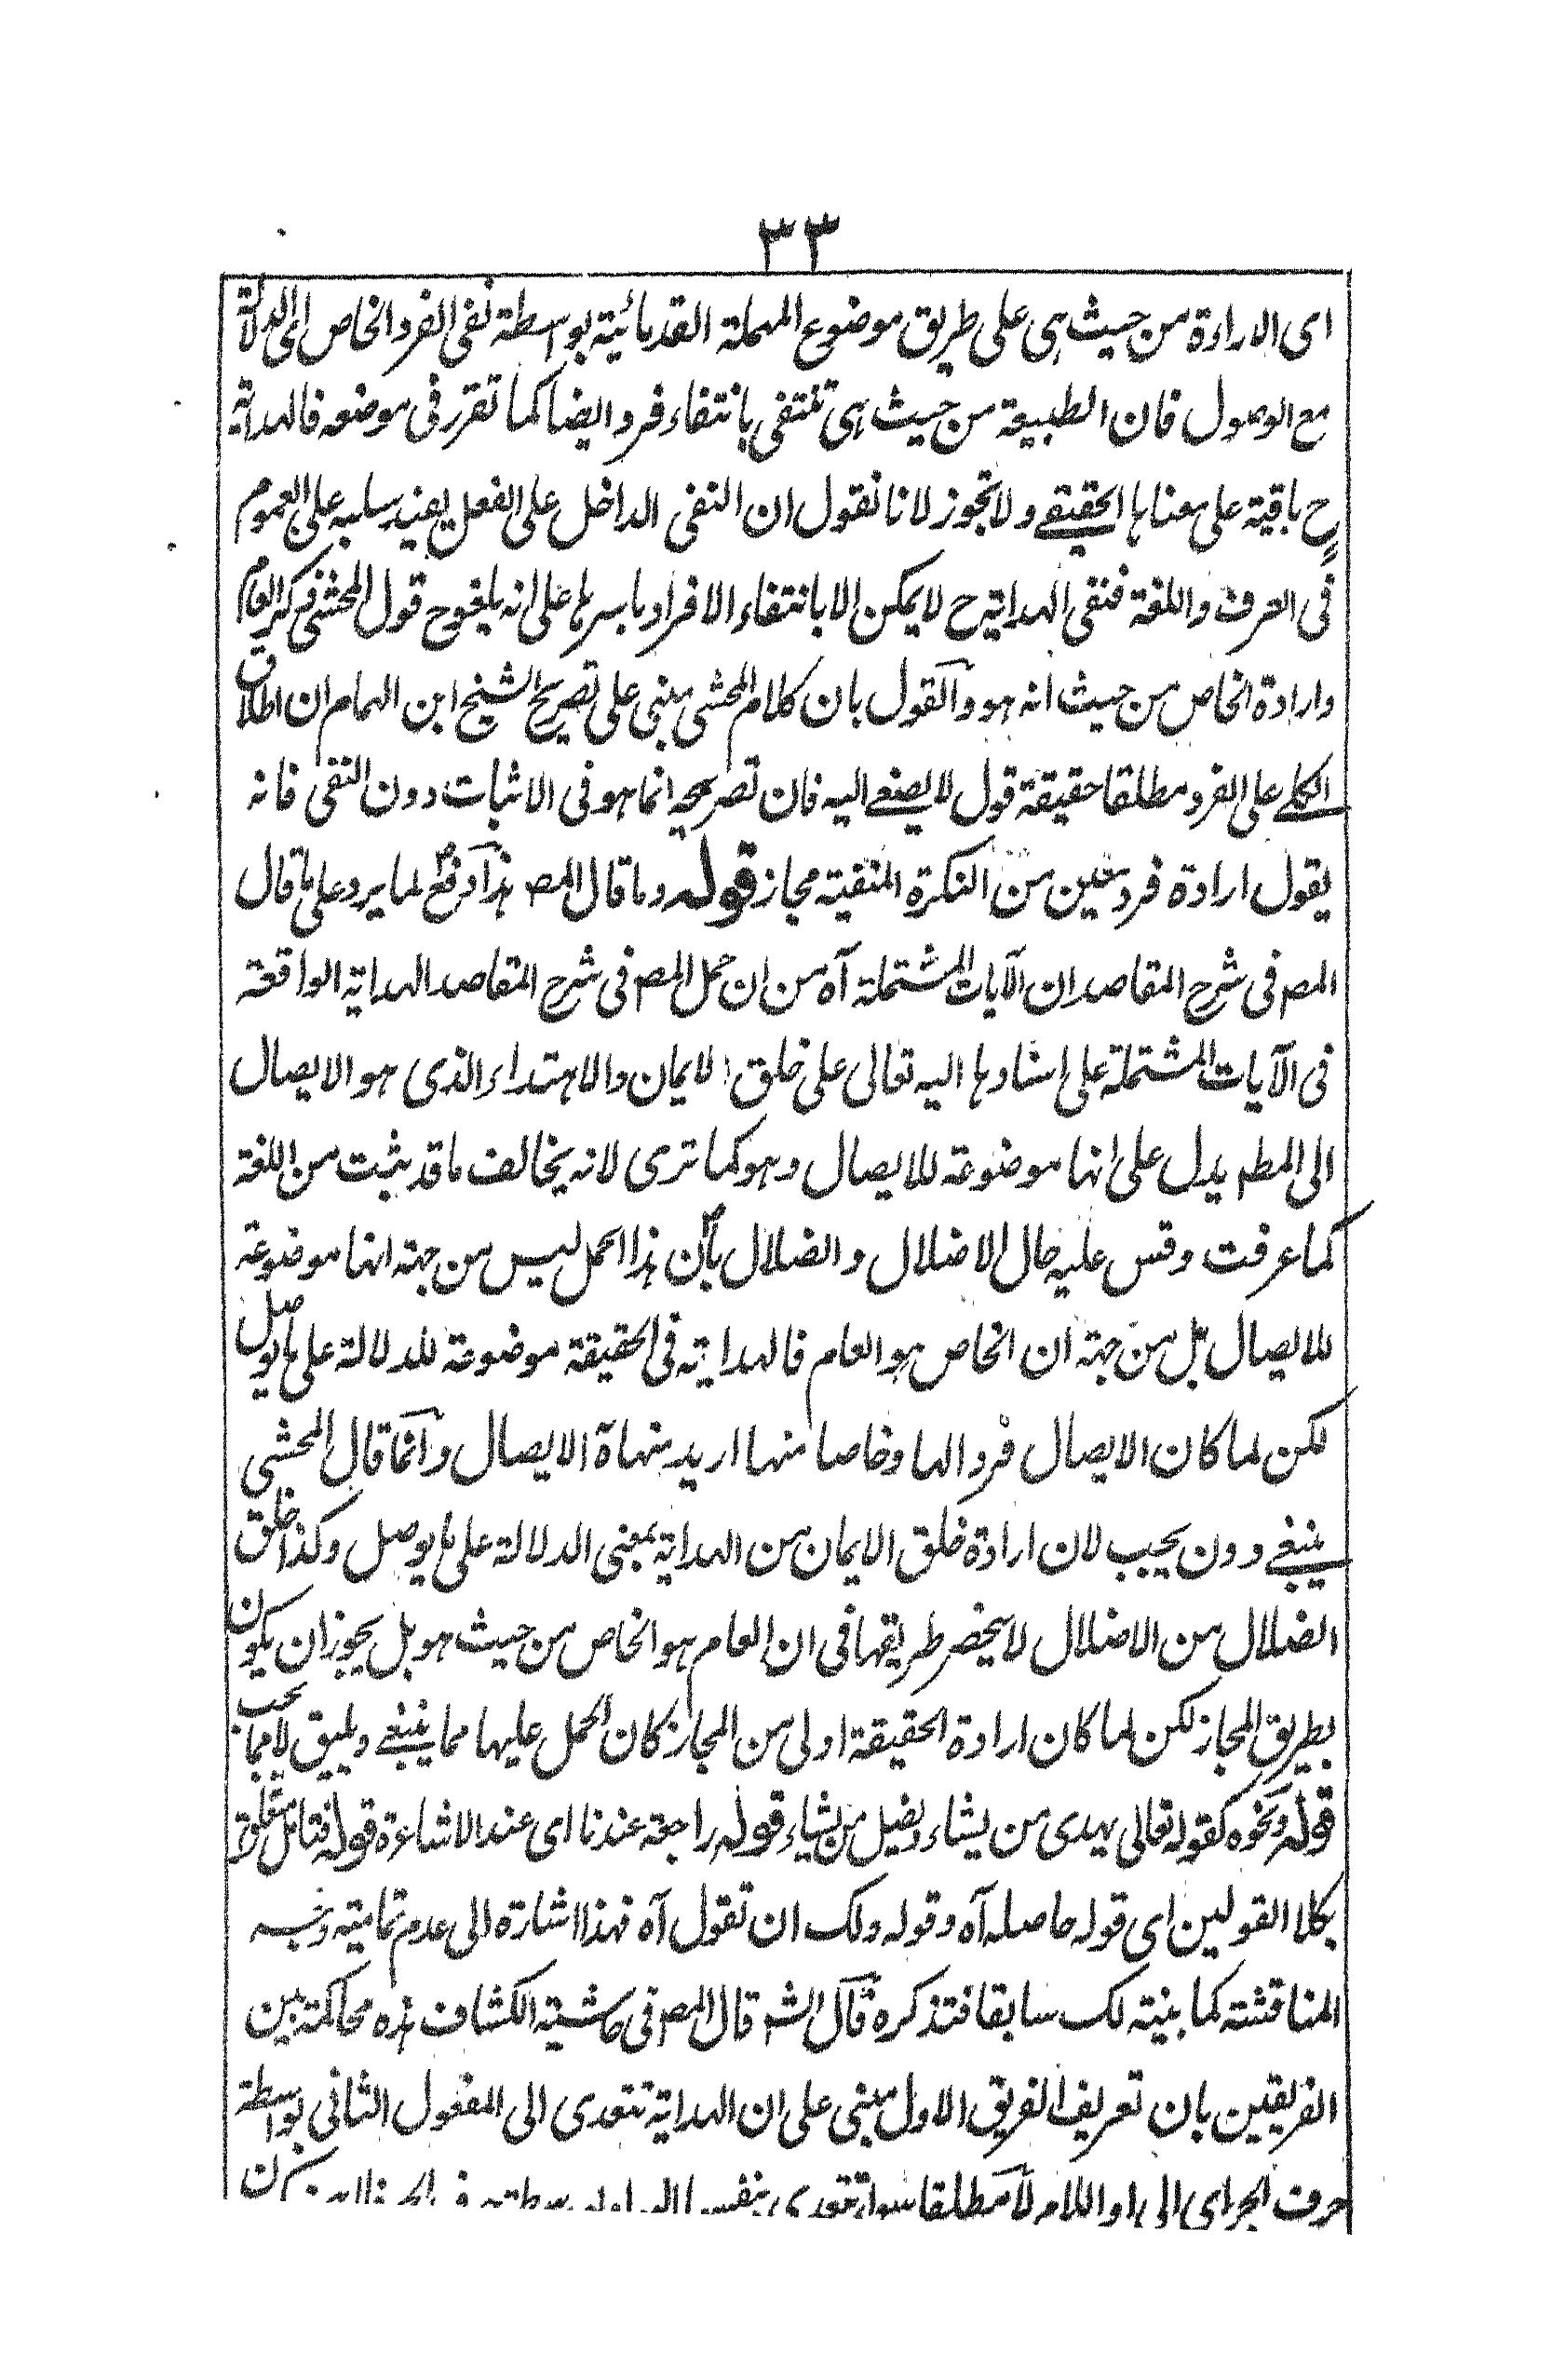 ٣٣
اى الاراءة من حيث هى على طريق موضوع المهملة القدمائية بواسطة نفى الفرد الخاص اى الدلالة
مع الوصول فان الطبيعة من حيث هى تنتفى بانتفاء فرد ايضا كما تقرر فى موضعه فالهداية
ح باقية على معناها الحقيقى ولا تجوز لانا نقول ان النفى الداخل على الفعل يفيد سلبه على العموم
فى العرف واللغة فنفى الهداية ح لا يمكن الا بانتفاء الافراد باسرها على انه يلغو ح قول المحشى ذكر العام
وارادة الخاص من حيث انه هو والقول بان كلام المحشى مبنى على تصريح الشيخ ابن الهمام ان اطلاق
الكلى على الفرد مطلقا حقيقة قول لا يصغى اليه فان تصريحه انما هو فى الاثبات دون النفى فانه
يقول ارادة فرد معين من النكرة المنفية مجاز قوله وما قال المص هذا دفع لما يرد على ما قال
المص فى شرح المقاصد ان الآيات المشتملة آه من ان حمل المص فى شرح المقاصد الهداية الواقعة
فى الآيات المشتملة على اسنادها اليه تعالى على خلق الايمان والاهتداء الذى هو الايصال
الى المط يدل على انها موضوعة للايصال وهو كما ترى لانه يخالف ما قد يثبت من اللغة
كما عرفت وقس عليه حال الاضلال والضلال بان هذا الحمل ليس من جهة انها موضوعة
للايصال بل من جهة ان الخاص هو العام فالهداية فى الحقيقة موضوعة للدلالة على ما يوصل
لكن لما كان الايصال فردا لها وخاصا منها اريد منها آه الايصال وانما قال المحشى
ينبغى دون يجب لان ارادة خلق الايمان من الهداية بمعنى الدلالة على ما يوصل وكذا خلق
الضلال من الاضلال لا ينحصر طريقها فى ان العام هو الخاص من حيث هو بل يجوز ان يكون
بطريق المجاز لكن لما كان ارادة الحقيقة اولى من المجاز كان الحمل عليها مما ينبغى ويليق لا مما يجب
قوله ونحوه كقوله تعالى يهدى من يشاء ويضل من يشاء قوله راجعة عندنا اى عند الاشاعرة قوله فتامل متعلق
بكلا القولين اى قوله حاصله آه وقوله ولك ان تقول آه فهذا اشارة الى عدم تمامية وجه
المناقشة كما بينته لك سابقا فتذكره قال الش قال المص فى حاشية الكشاف هذه محاكمة بين
الفريقين بان تعريف الفريق الاول مبنى على ان الهداية تتعدى الى المفعول الثانى بواسطة
حرف الجر اى الى او اللام لا مطلقا سواء تتعدى بنفسها